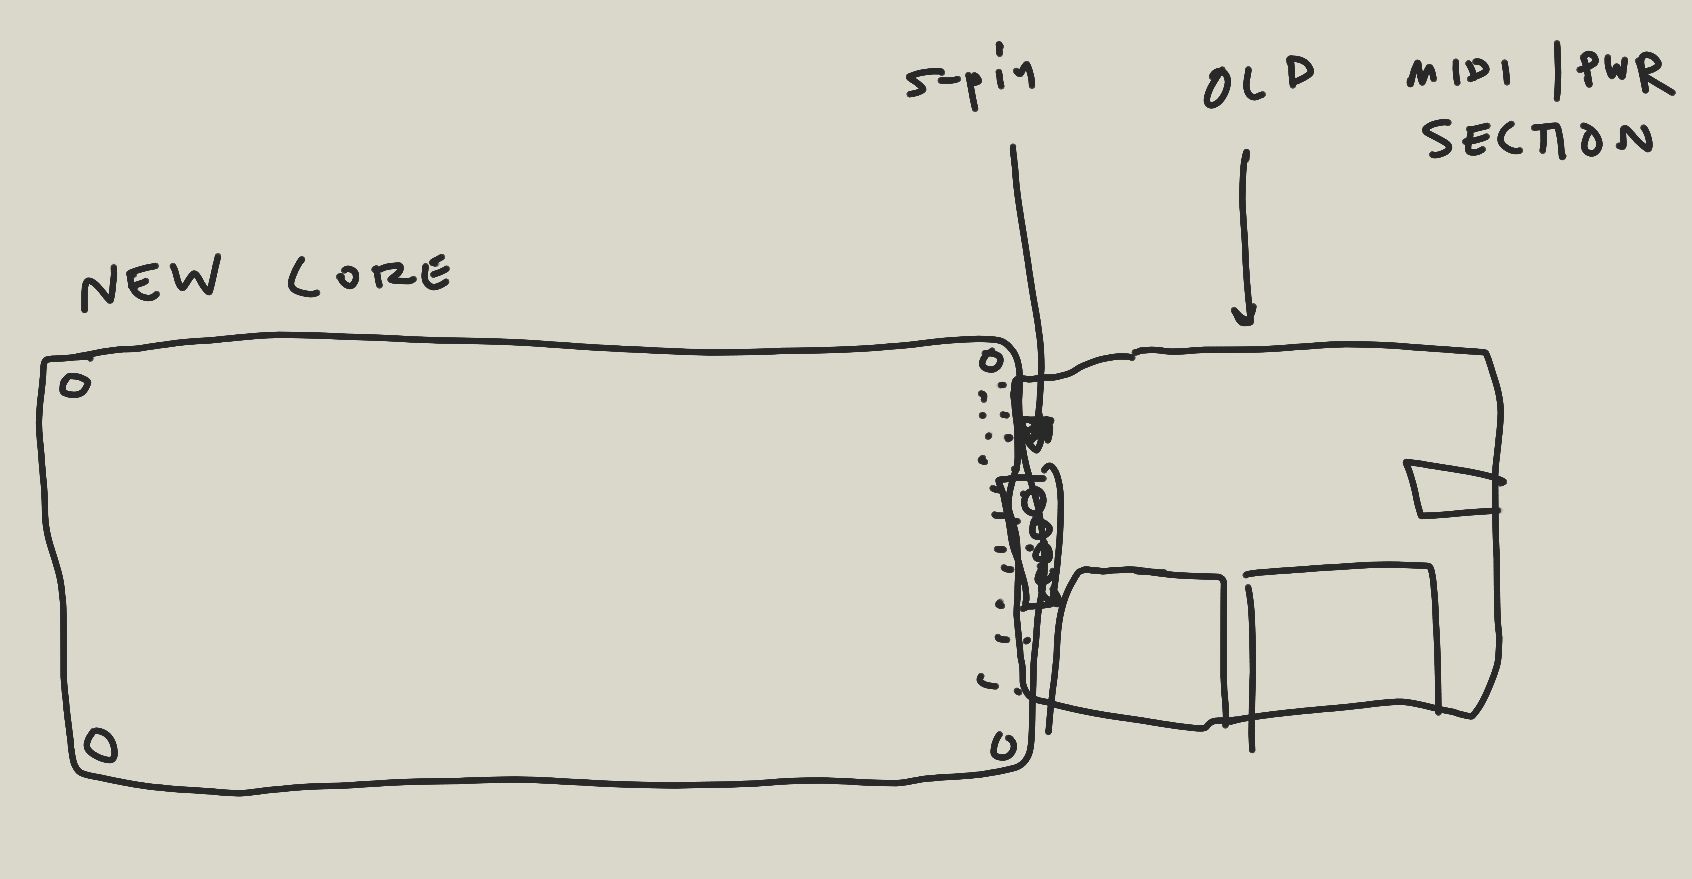 5-pin
OLD
MIDI / PWR
SECTION
NEW CORE